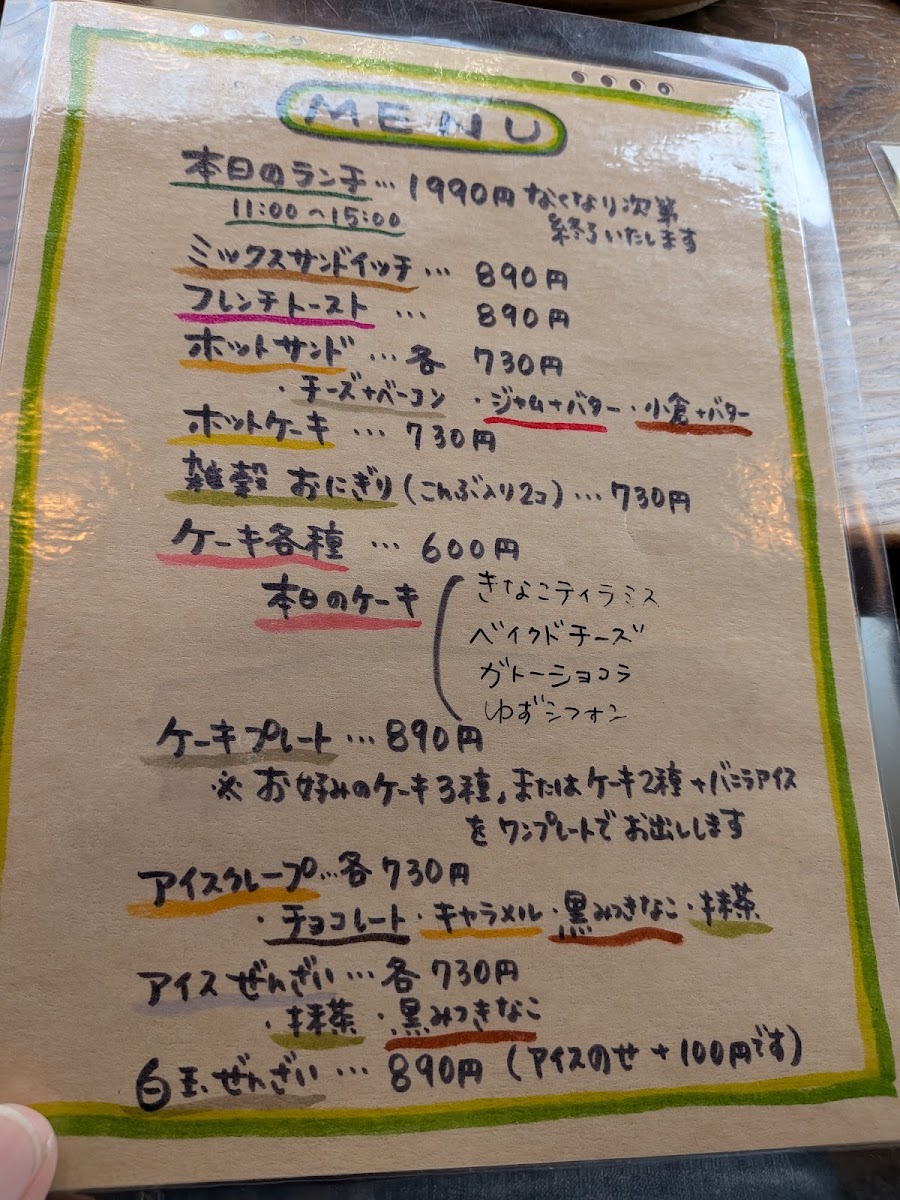 MENU
本日のランチ… 1990円 なくなり次第
11:00〜15:00 終了いたします
ミックスサンドイッチ … 890円
フレンチトースト … 890円
ホットサンド … 各 730円
・チーズ+ベーコン ・ジャム+バター ・小倉+バター
ホットケーキ … 730円
雑穀 おにぎり(こんぶ入り2コ) … 730円
ケーキ各種 … 600円
本日のケーキ
きなこティラミス
ベイクドチーズ
ガトーショコラ
ゆずシフォン
ケーキプレート … 890円
※ お好みのケーキ3種、またはケーキ2種+バニラアイス
をワンプレートでお出しします
アイスクレープ…各730円
・チョコレート・キャラメル・黒みつきなこ・抹茶
アイスぜんざい … 各730円
・抹茶 ・黒みつきなこ
白玉ぜんざい … 890円 (アイスのせ +100円です)